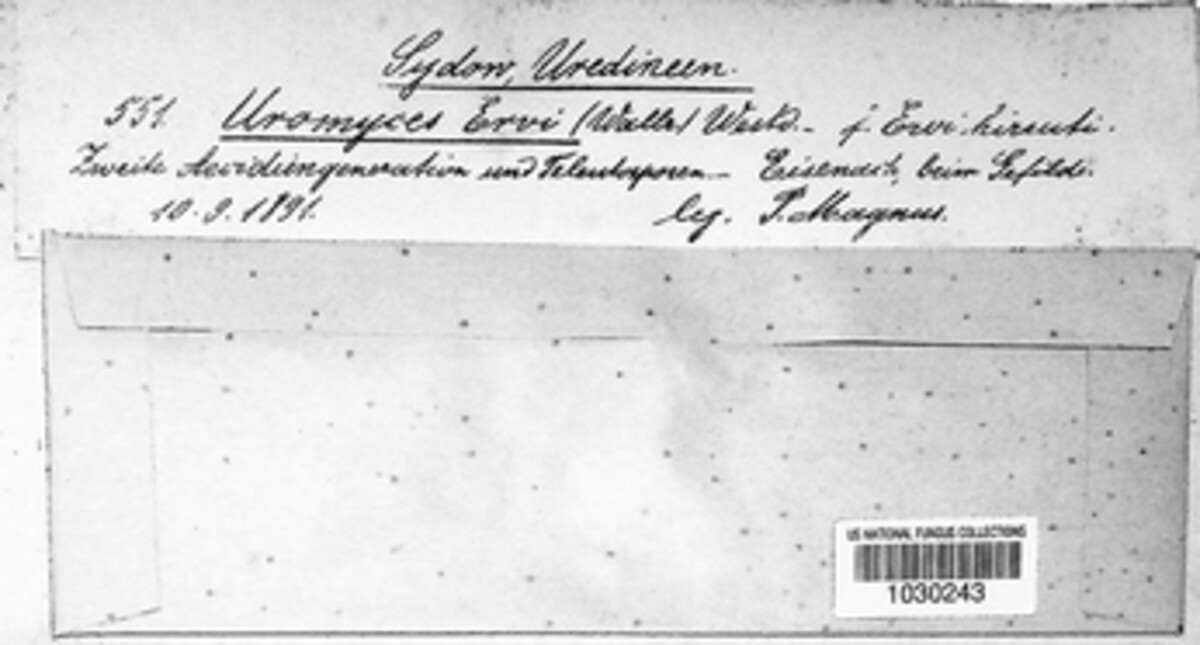 Sydow, Uredineen.
551. Uromyces Ervi (Wallr) Westd. – f. Ervi hirsuti.
Zweite Aecidiengeneration und Teleutosporen – Eisenach, beim
10. 9. 1891. leg. P. Magnus.
US NATIONAL FUNGUS COLLECTIONS
1030243